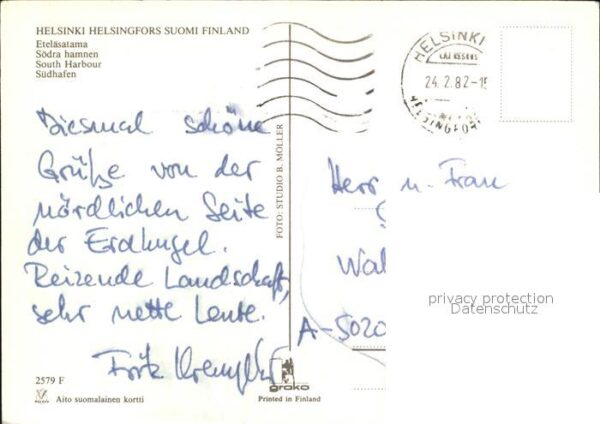 HELSINKI HELSINGFORS SUOMI FINLAND
Eteläsatama
Södra hamnen
South Harbour
Südhafen
HELSINKI
24.2.82-15
HELSINGFORS
Diesmal schöne
Grüße von der
nördlichen Seite
der Erdkugel.
Reizende Landschaft,
sehr nette Leute.
Fritz
FOTO: STUDIO B. MÖLLER
Herr u. Frau
Wal
A-5020
privacy protection
Datenschutz
2579 F
Aito suomalainen kortti
groko
Printed in Finland